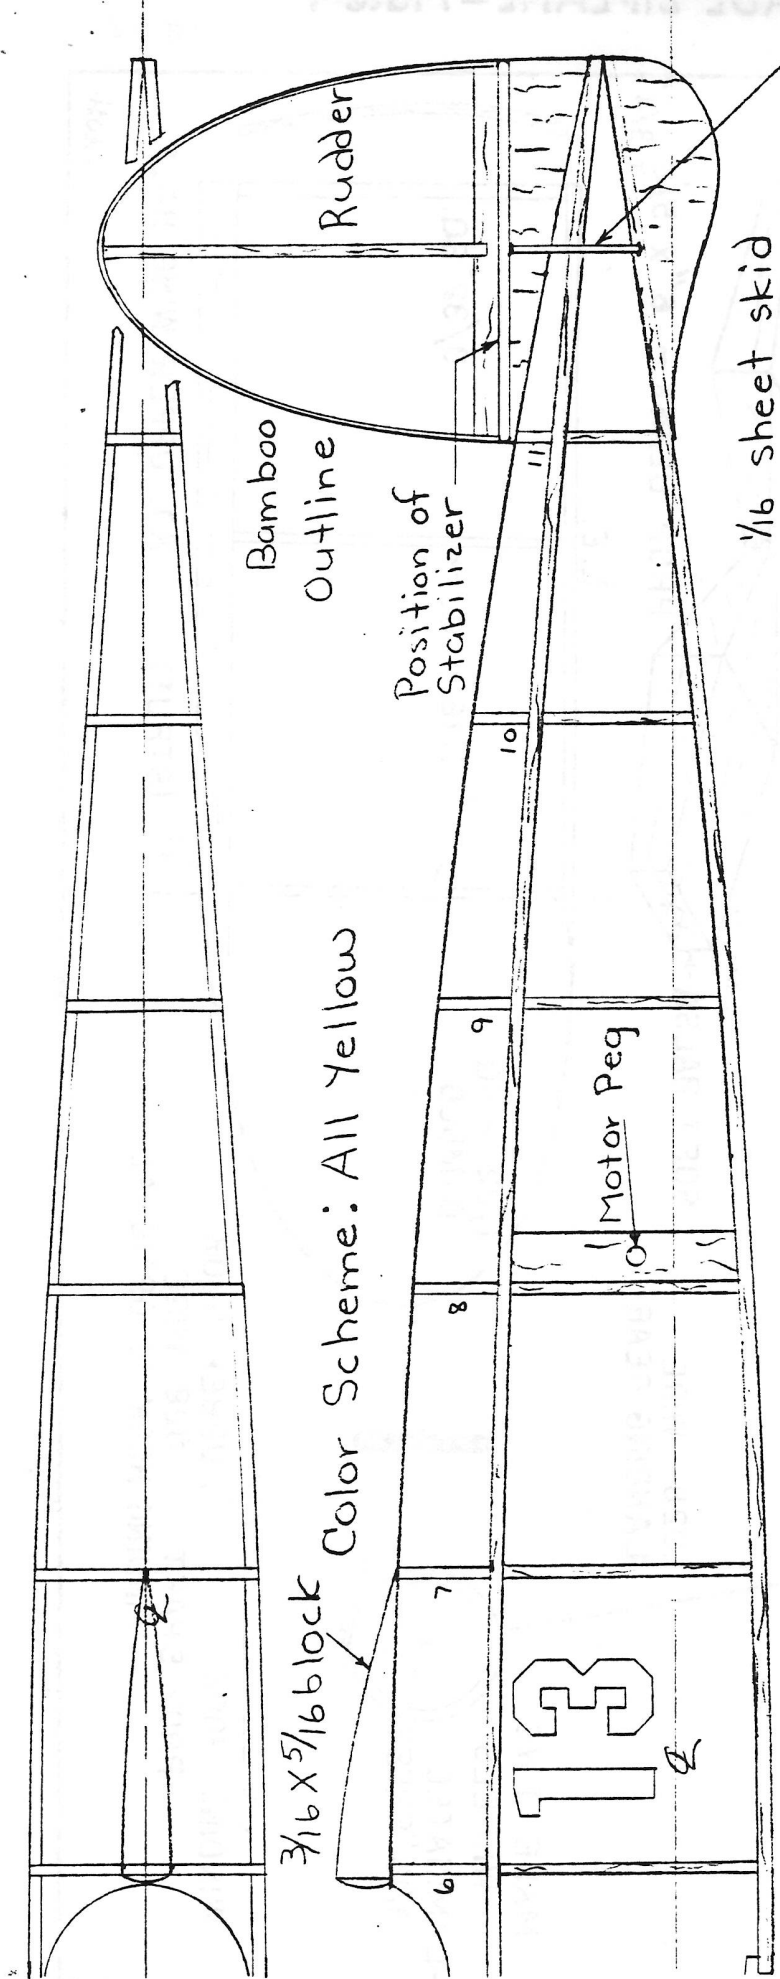 Rudder
Bamboo
Outline
Position of
Stabilizer
1/16 sheet skid
Color Scheme: All Yellow
3/16 X 5/16 block
Motor Peg
6
7
8
9
10
11
13